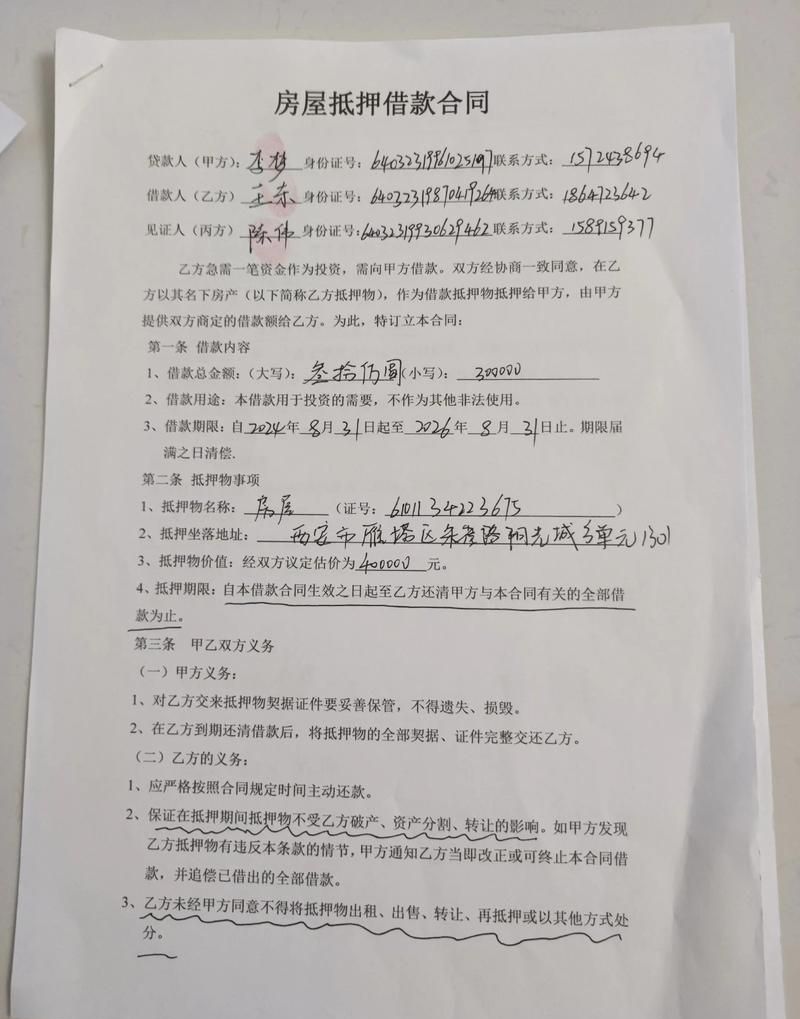 房屋抵押借款合同
贷款人（甲方）：李梦 身份证号：640323199610251197联系方式：1572438694
借款人（乙方）王东 身份证号：64032319870419264联系方式：1864723642
见证人（丙方）陈伟 身份证号：640323199930629462联系方式：1589159377
乙方急需一笔资金作为投资，需向甲方借款。双方经协商一致同意，在乙
方以其名下房产（以下简称乙方抵押物），作为借款抵押物抵押给甲方，由甲方
提供双方商定的借款额给乙方。为此，特订立本合同：
第一条 借款内容
1、借款总金额：（大写）：叁拾佰圆（小写）：300000
2、借款用途：本借款用于投资的需要，不作为其他非法使用。
3、借款期限：自2024年8月31日起至2026年8月31日止。期限届
满之日清偿.
第二条 抵押物事项
1、抵押物名称：房屋（证号：6101134223675）
2、抵押坐落地址：西安市雁塔区朱雀路阳光城单元1301
3、抵押物价值：经双方议定估价为400000元。
4、抵押期限：自本借款合同生效之日起至乙方还清甲方与本合同有关的全部借
款为止。
第三条 甲乙双方义务
（一）甲方义务：
1、对乙方交来抵押物契据证件要妥善保管，不得遗失、损毁。
2、在乙方到期还清借款后，将抵押物的全部契据、证件完整交还乙方。
（二）乙方的义务：
1、应严格按照合同规定时间主动还款。
2、保证在抵押期间抵押物不受乙方破产、资产分割、转让的影响。如甲方发现
乙方抵押物有违反本条款的情节，甲方通知乙方当即改正或可终止本合同借
款，并追偿已借出的全部借款。
3、乙方未经甲方同意不得将抵押物出租、出售、转让、再抵押或以其他方式处
分。